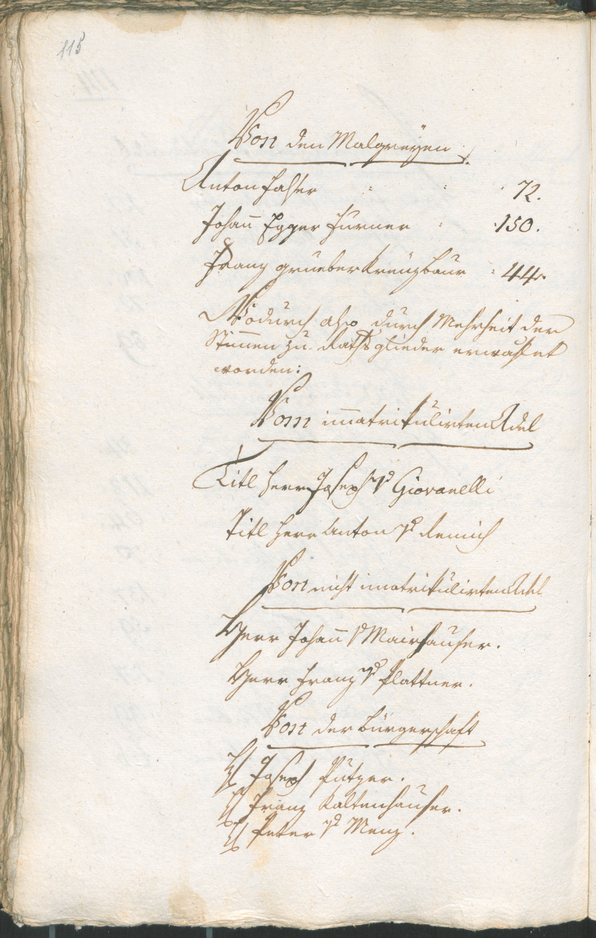 115
Von den Malgreyen.
Anton Faser : : 72.
Johann Egger Hurner : 150.
Franz Grueber Kreuzbaur : 44.
Wodurch also durch Mehrheit der
Stimmen zu Rathsglieder erwählet
worden:
Vom immatrikulirten Adel
Titl Herr Joseph v Giovanelli
Titl Herr Anton v Remich
Von nicht imatrikulirten Adel
Herr Johann v Mairhauser.
Herr Franz v Plattner.
Von der Bürgerschaft
H Joseph Putzer.
H Franz Kaltenhauser.
H Peter v Menz.